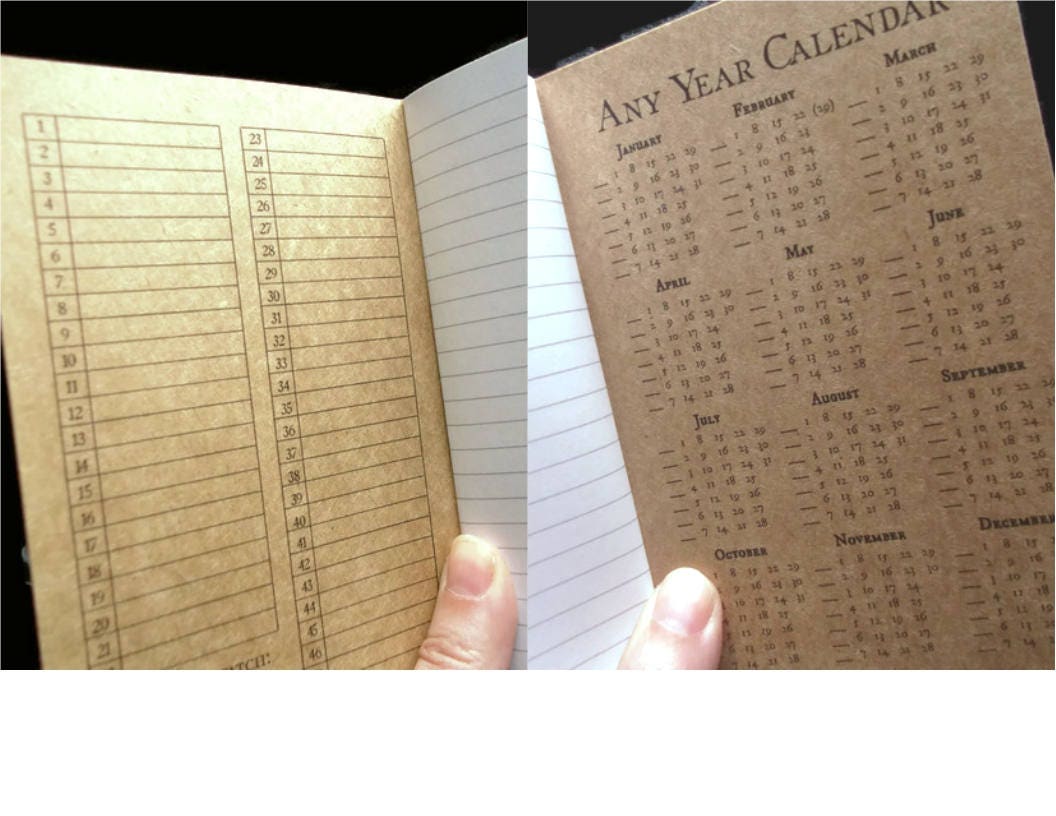 1
2
3
4
5
6
7
8
9
10
11
12
13
14
15
16
17
18
19
20
21
23
24
25
26
27
28
29
30
31
32
33
34
35
36
37
38
39
40
41
42
43
44
45
46
ANY YEAR CALENDAR
JANUARY
1 8 15 22 29
2 9 16 23 30
3 10 17 24 31
4 11 18 25
5 12 19 26
6 13 20 27
7 14 21 28
FEBRUARY
1 8 15 22 (29)
2 9 16 23
3 10 17 24
4 11 18 25
5 12 19 26
6 13 20 27
7 14 21 28
MARCH
1 8 15 22 29
2 9 16 23 30
3 10 17 24 31
4 11 18 25
5 12 19 26
6 13 20 27
7 14 21 28
APRIL
1 8 15 22 29
2 9 16 23 30
3 10 17 24
4 11 18 25
5 12 19 26
6 13 20 27
7 14 21 28
MAY
1 8 15 22 29
2 9 16 23 30
3 10 17 24 31
4 11 18 25
5 12 19 26
6 13 20 27
7 14 21 28
JUNE
1 8 15 22 29
2 9 16 23 30
3 10 17 24
4 11 18 25
5 12 19 26
6 13 20 27
7 14 21 28
JULY
1 8 15 22 29
2 9 16 23 30
3 10 17 24 31
4 11 18 25
5 12 19 26
6 13 20 27
7 14 21 28
AUGUST
1 8 15 22 29
2 9 16 23 30
3 10 17 24 31
4 11 18 25
5 12 19 26
6 13 20 27
7 14 21 28
SEPTEMBER
1 8 15 22
2 9 16 23
3 10 17 24
4 11 18 25
5 12 19 26
6 13 20 27
7 14 21 28
OCTOBER
1 8 15 22 29
9 16 23 30
10 17 24 31
11 18 25
12 19 26
6 13 20 27
7 14 21 28
NOVEMBER
1 8 15 22 29
2 9 16 23 30
3 10 17 24
4 11 18 25
5 12 19 26
6 13 20 27
7 14 21 28
DECEMBER
1 8 15
2 9 16
3 10 17
4 11 18
5 12 19
6 13 20
7 14 21